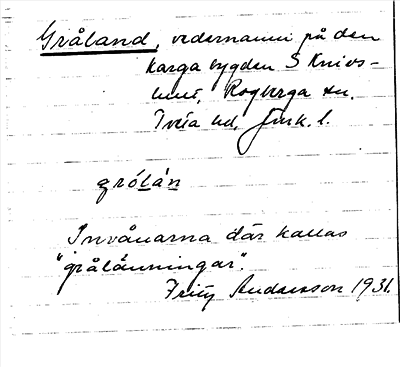 Gråland, vedernamn på den
karga bygden S Knivs-
hult, Rogberga sn.
Tveta hd, Jönk. l.
grólán
Invånarna där kallas
"grålänningar".
Fritz Andersson 1931.